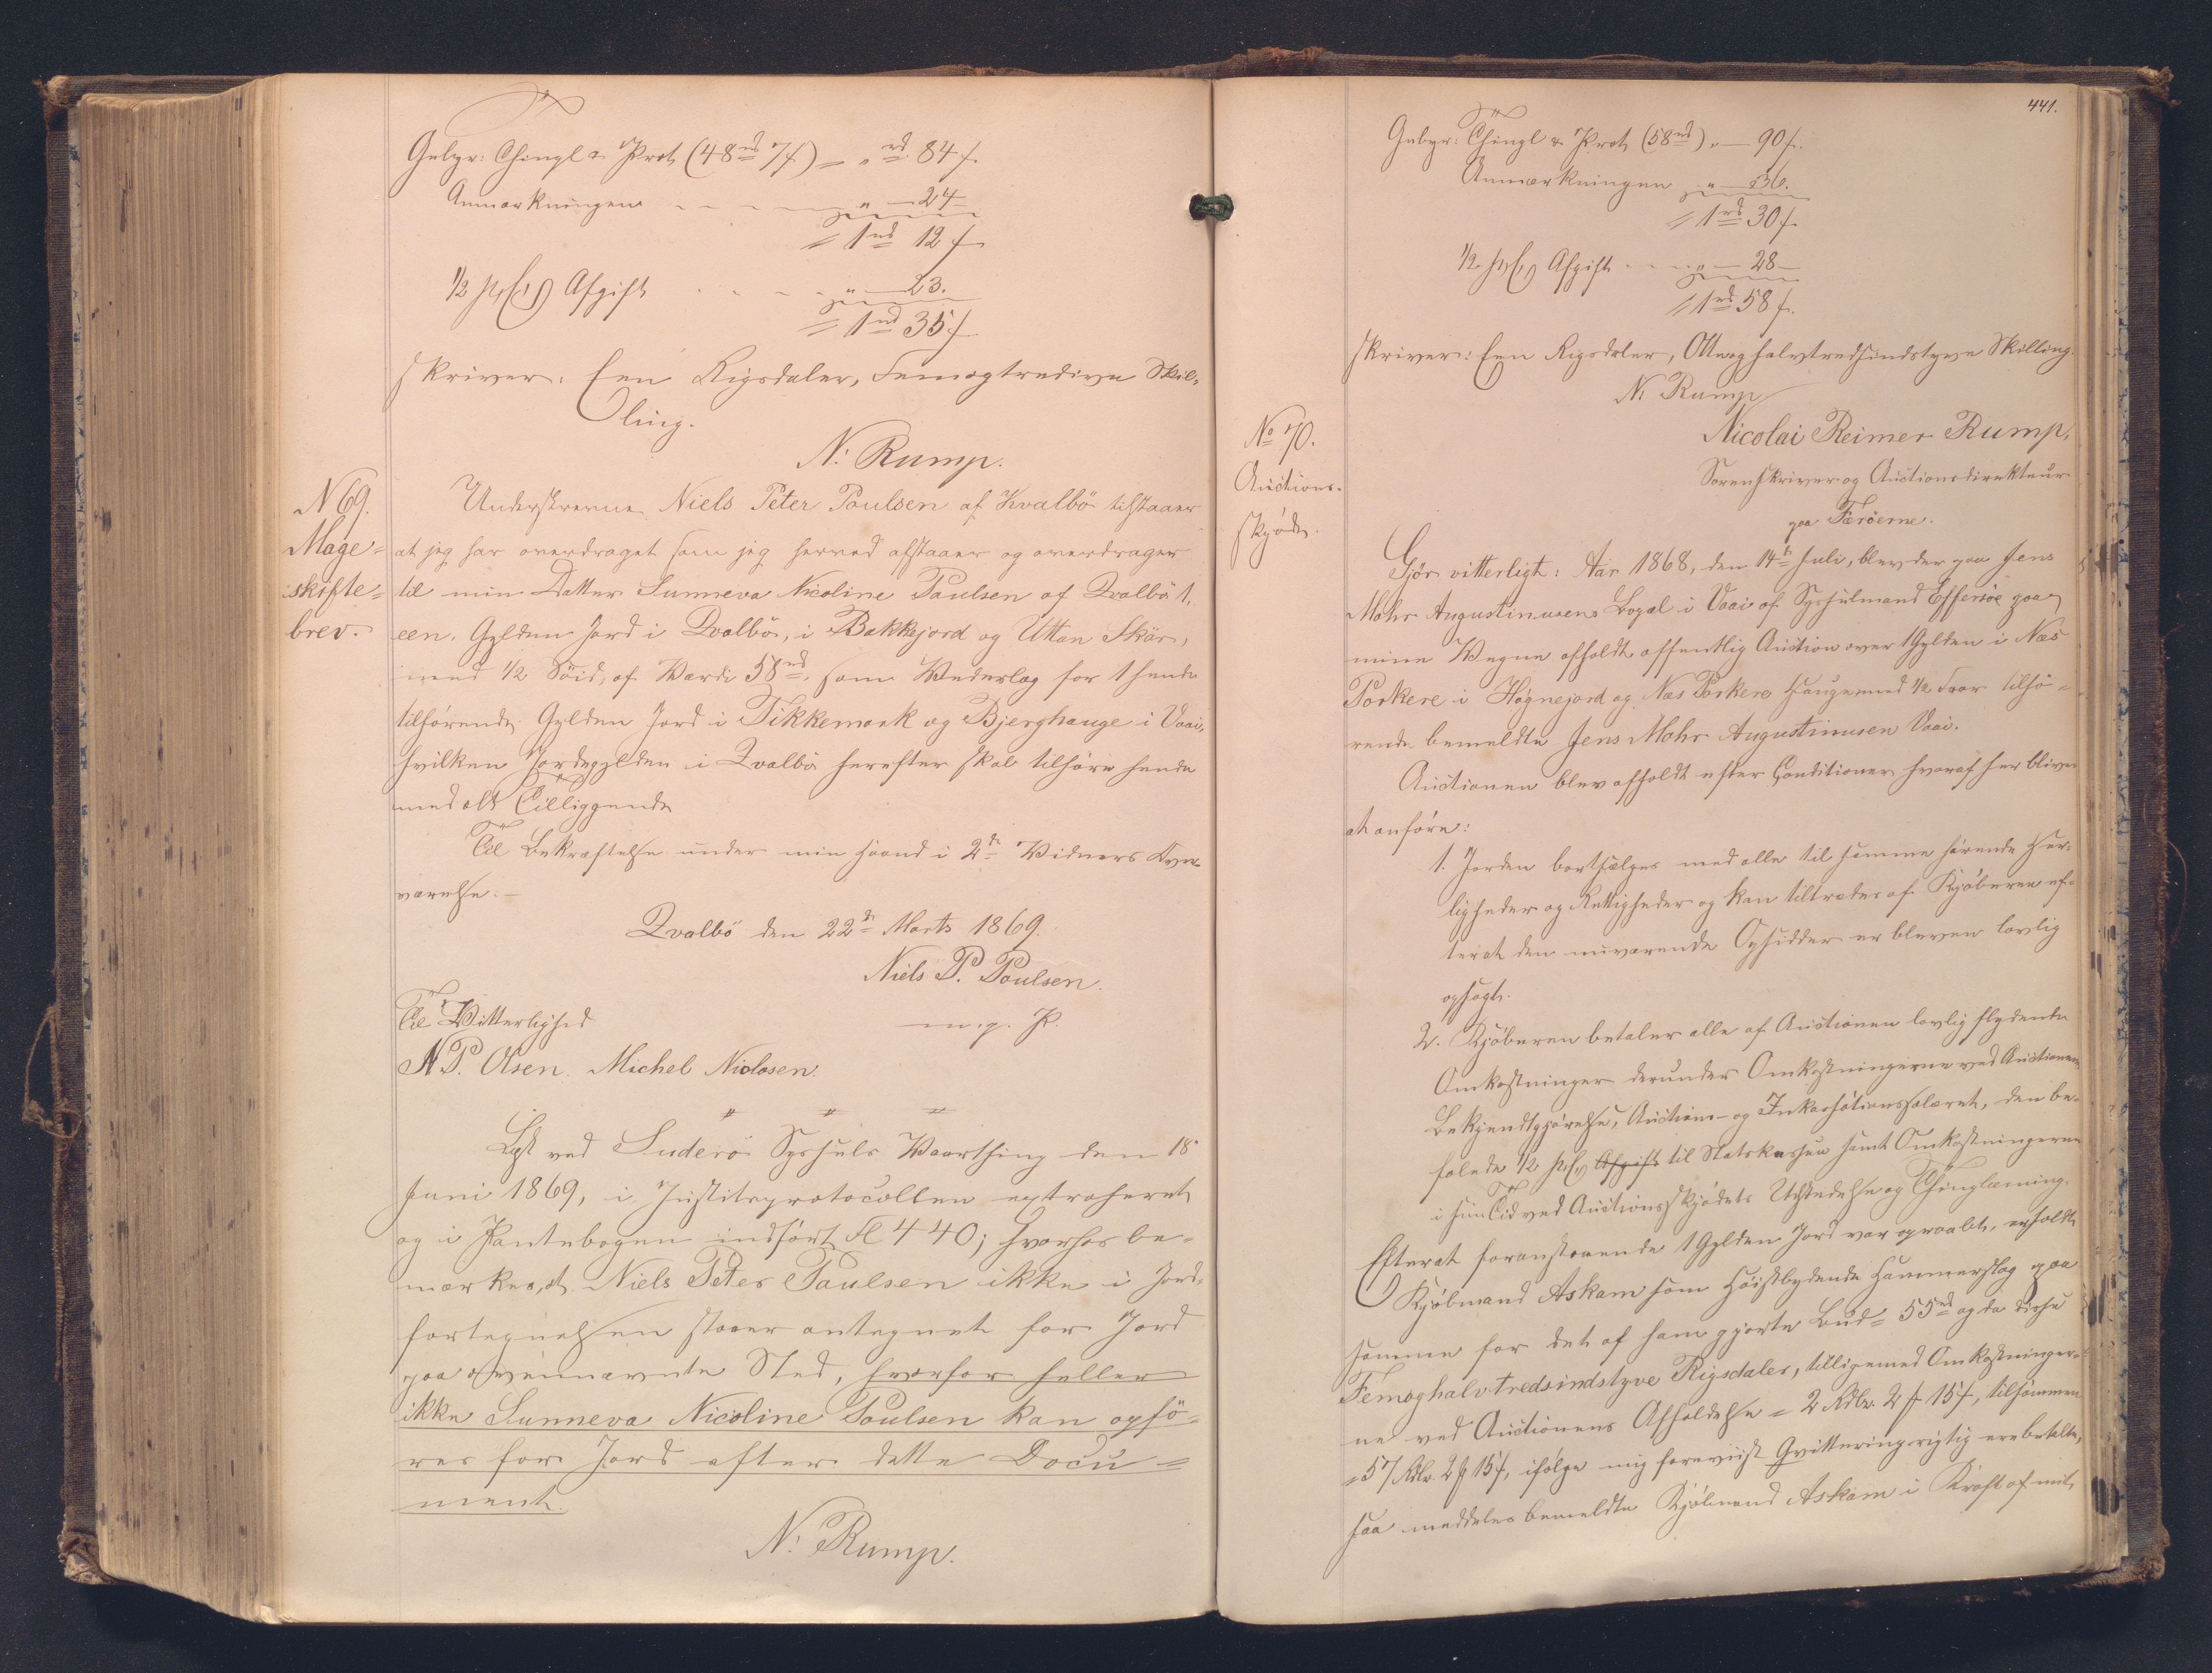 Gebyr: Thingl & Prot (48 rd 7 f) = " rd 84 f
Anmærkningen - - - " — 24 —
= 1 rd 12 f
1/2 pCt Afgift - - - " — 23.
= 1 rd 35 f
skriver: Een Rigsdaler, Femogtredive Skil=
ling.
N. Rump.
N 69.
Mage=
skifte=
brev.
Underskrevne Niels Peter Poulsen af Kvalbö tilstaaer
at jeg har overdraget som jeg herved afstaaer og overdrager
til min Datter Sunneva Nicoline Paulsen af Qvalbö 1,
een, Gylden Jord i Qvalbö, i Bakkejord og Uttan Skör,
med 1/2 Söid, af Værdi 58 rd, som Vederlag for 1 hende
tilhörende Gylden Jord i Tikkemork og Bjerghauge i Vaai,
hvilken Jordegylden i Qvalbö herefter skal tilhöre hende
med alt Tilliggende
Til Bekræftelse under min Haand i 2de Vidners Over
værelse. -
Qvalbö den 22de Marts 1869.
Niels P. Poulsen.
m. p. P.
Til Vitterlighed
N P. Olsen. Michel Niclosen.
" " "
Læst ved Suderö Syssels Vaarthing den 18
Juni 1869, i Justitsprotocollen extraheret
og i Pantebogen indfört Fl 440; hvorhos be=
mærkes, at Niels Peter Paulsen ikke i Jord=
fortegnelsen staaer antegnet for Jord
paa ovennævnte Sted, hvorfor heller
ikke Sunneva Nicoline Poulsen kan opfö=
res for Jord efter dette Docu=
ment.
N. Rump.
441.
Gebyr: Thingl & Prot (58 rd) " — 90 f.
Anmærkningen " — 36.
= 1 rd 30 f.
1/2 pCt Afgift - - - " — 28 —
= 1 rd 58 f.
skriver: Een Rigsdaler, Otteoghalvtredsindstyve Skilling.
N. Rump
No 70.
Auctions=
skjöde.
Nicolai Reimer Rump,
Sorenskriver og Auctionsdirekteur
paa Færöerne.
Gjör vitterligt: Aar 1868, den 14de Juli, blev der paa Jens
Mohr Augustinusens Bopæl i Vaai af Sysselmand Effersöe paa
mine Vegne afholdt offentlig Auction over 1 Gylden i Næs
Porkere i Høgnejord og Næs Porkere Hauge med 1/2 Faar tilhö=
rende bemeldte Jens Mohr Augustinusen Vaai.
Auctionen blev afholdt efter Conditioner hvoraf her bliver
at anföre:
1. Jorden bortsælges med alle til samme hörende Her=
ligheder og Rettigheder og kan tiltrædes af Kjöberen ef=
terat den nuværende Opsidder er bleven lovlig
opsagt.
2. Kjöberen betaler alle af Auctionen lovlig flydende
Omkostninger derunder Omkostningerne ved Auctionens
Bekjendtgjörelse, Auctions- og Inkassationssalæret, den be=
falede 1/2 pCt Afgift til Statskassen samt Omkostningerne
i sin Tid ved Auctionsskjödets Udstedelse og Thinglæsning.
Efterat foranstaaende 1 Gylden Jord var opraabt, erholdt
Kjöbmand Askam som Höistbydende Hammerslag paa
samme for det af ham gjorte Bud = 55 rd og da disse
Femoghalvtredsindstyve Rigsdaler, tilligemed Omkostninger=
ne ved Auctionens Afholdelse = 2 Rdlr. 2 f 15 f, tilsammen
= 57 Rdlr. 2 f 15 f, ifölge mig foreviist Qvittering rigtig ere betalte,
saa meddeles bemeldte Kjöbmand Askam i Kraft af mit